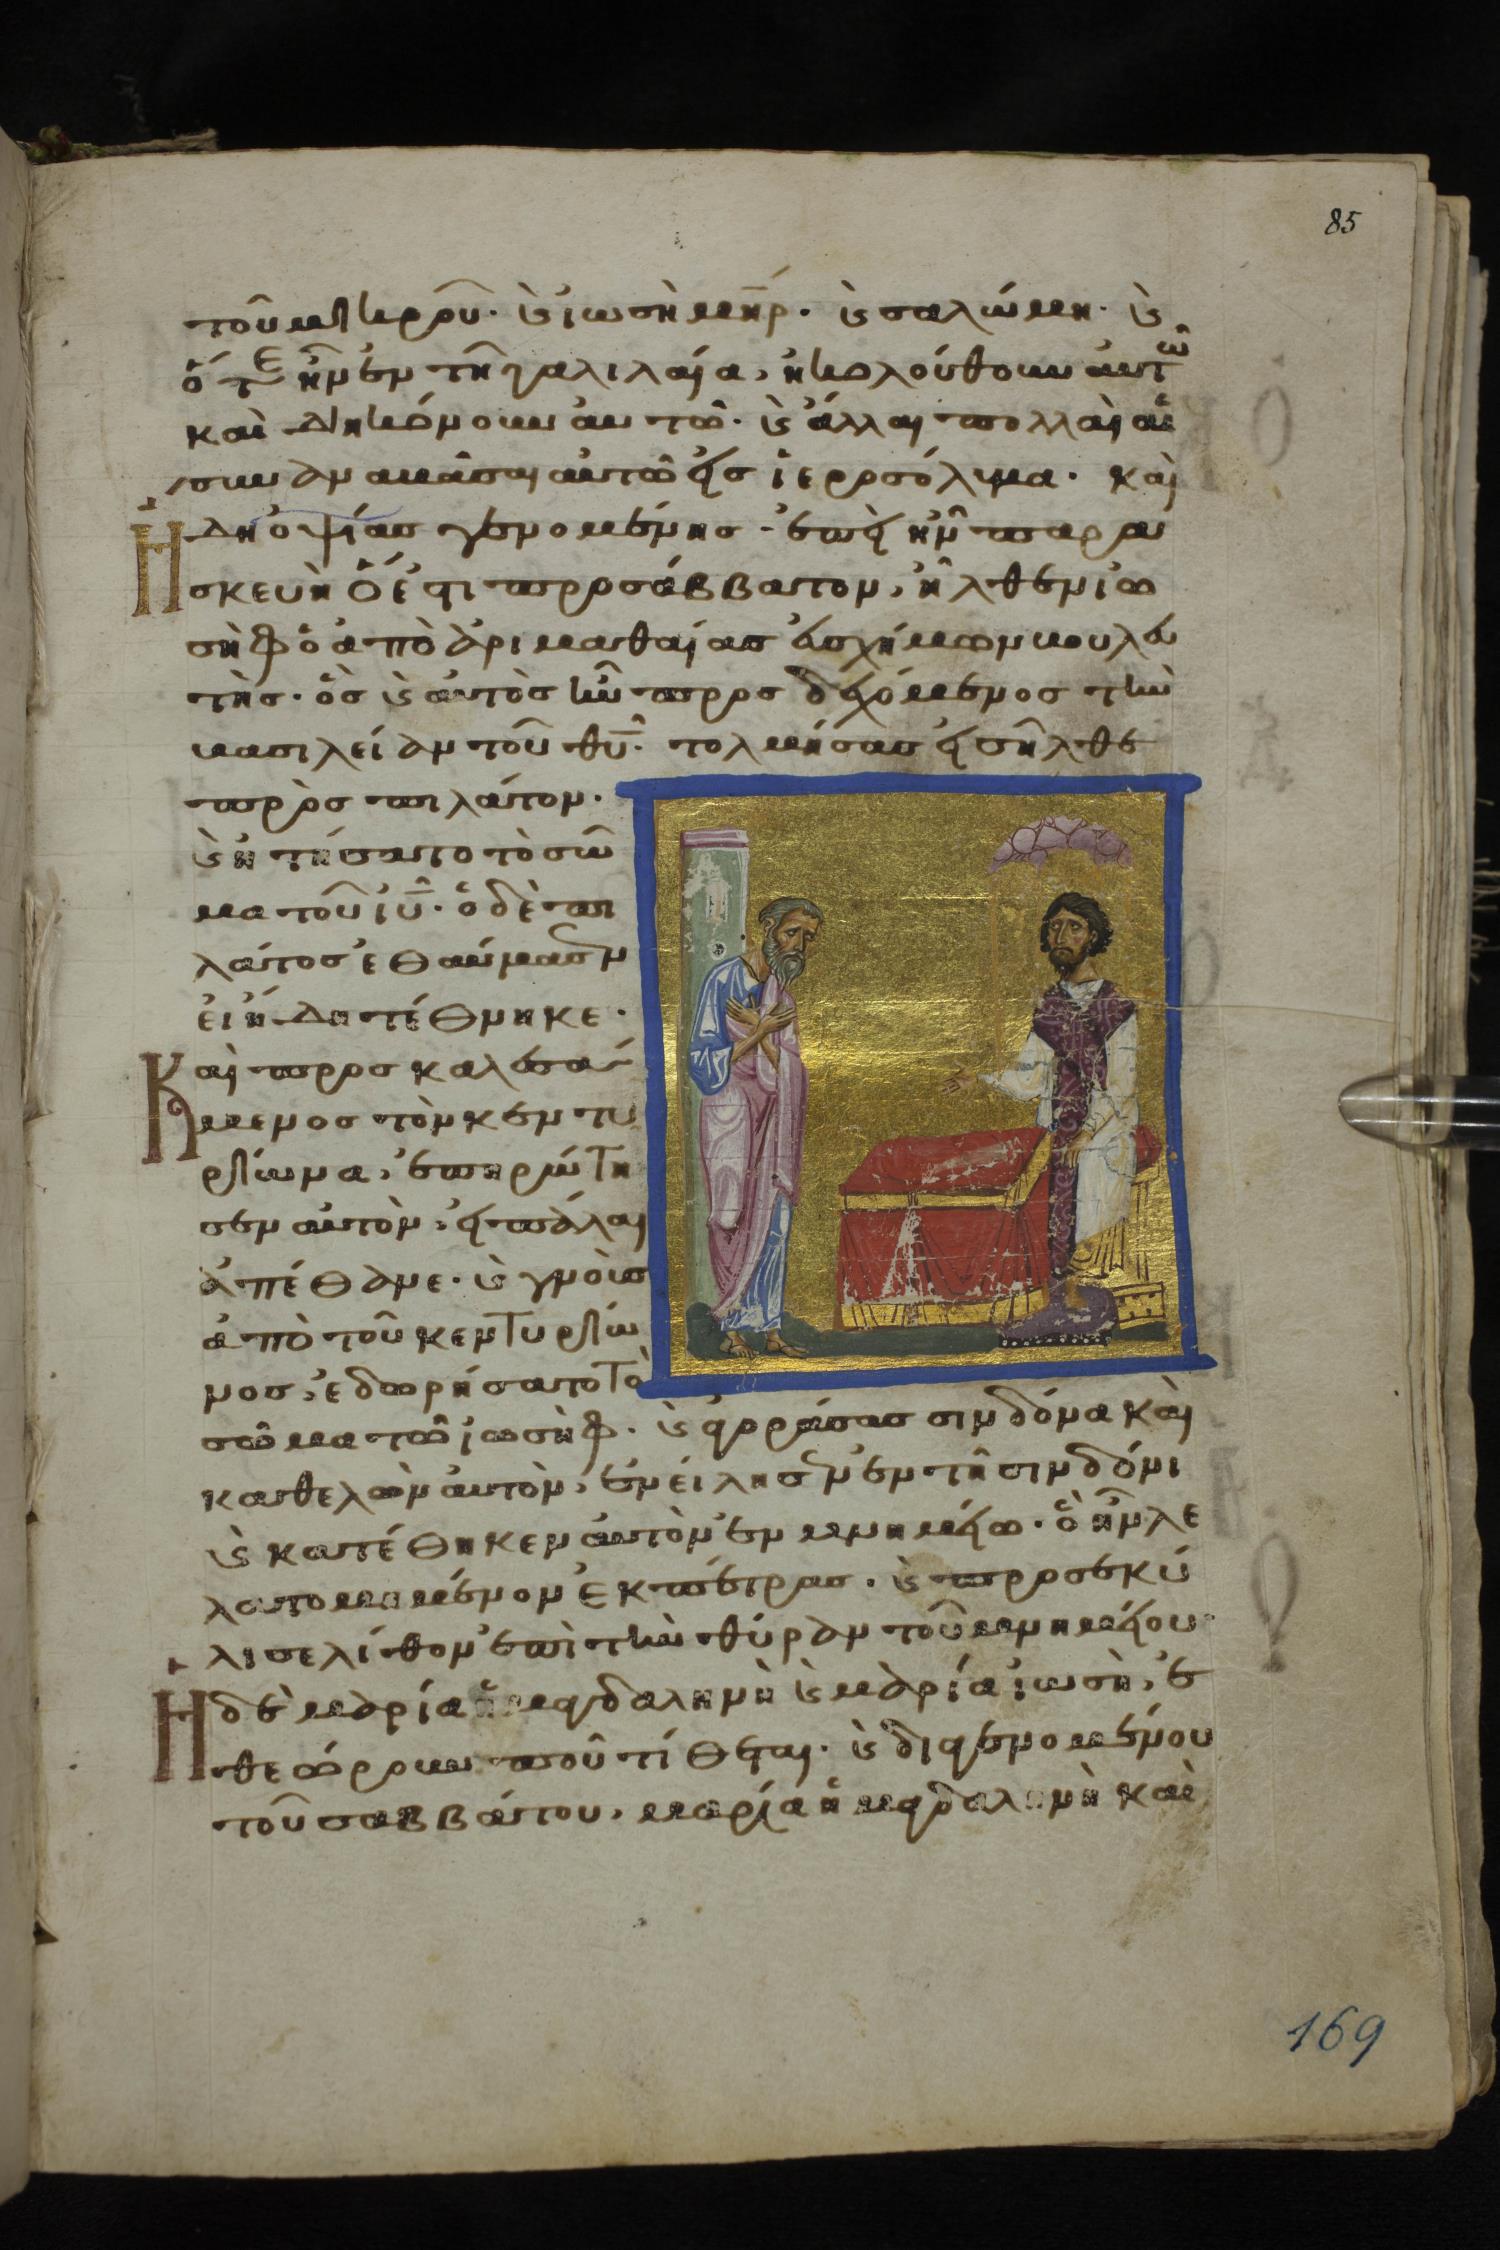 85
τοῦ μικροῦ· ϗ ἰωσὴ μη̅ρ· ϗ σαλώμη· ϗ
ὅτε ἦν ἐν τῆ γαλιλαία, ἠκολούθουν αυτῶ
καὶ διηκόνουν ἀυτῶ· ϗ ἄλλαι πολλαὶ αἱ
συναναβᾶσαι αὐτῶ εἰς ἱεροσόλυμα· καὶ
ἤδη ὀψίας γενομένης· ἐπεὶ ἦν παρα
σκευὴ ὅ ἐστι προσάββατον, ἦλθεν ἰω
σὴφ ὁ ἀπὸ ἀριμαθαίας ἐυσχήμων βουλευ
τὴς· ὃς ϗ ἀυτὸς ἦν προσδεχόμενος τὴν
βασιλείαν τοῦ θ̅υ̅· τολμήσας εἰσῆλθε
πρὸς πιλάτον·
ϗ ἠτήσατο τὸ σῶ
μα τοῦ ἰ̅υ̅· ὁ δὲ πι
λάτος ἐθαύμασεν
εἰ ἤδη τέθνηκε·
Καὶ προσκαλεσά
μενος τὸν κεντυ
ρίωνα, ἐπηρώτη
σεν αὐτὸν, εἰ πάλαι
ἀπέθανε· ϗ γνοὺς
ἀπὸ τοῦ κεντυρίω
νος, ἐδωρήσατο τὸ
σῶμα τῶ ἰωσὴφ· ϗ ἀγοράσας σινδόνα καὶ
καθελὼν ἀυτὸν, ἐνείλησεν ἐν τῆ σινδόνι
ϗ κατέθηκεν ἀυτὸν ἐν μνημείω· ὃ ἦν λε
λατομημένον ἐκ πέτρας· ϗ προσεκύ
λισε λίθον ἐπὶ τὴν θύραν τοῦ μνημείου·
Η δὲ μαρία ἡ μαγδαληνὴ ϗ μαρία ἰωσὴ, ἐ
θεώρουν ποῦ τίθεται· ϗ διαγενομένου
τοῦ σαββάτου, μαρία ἡ μαγδαληνὴ καὶ
169